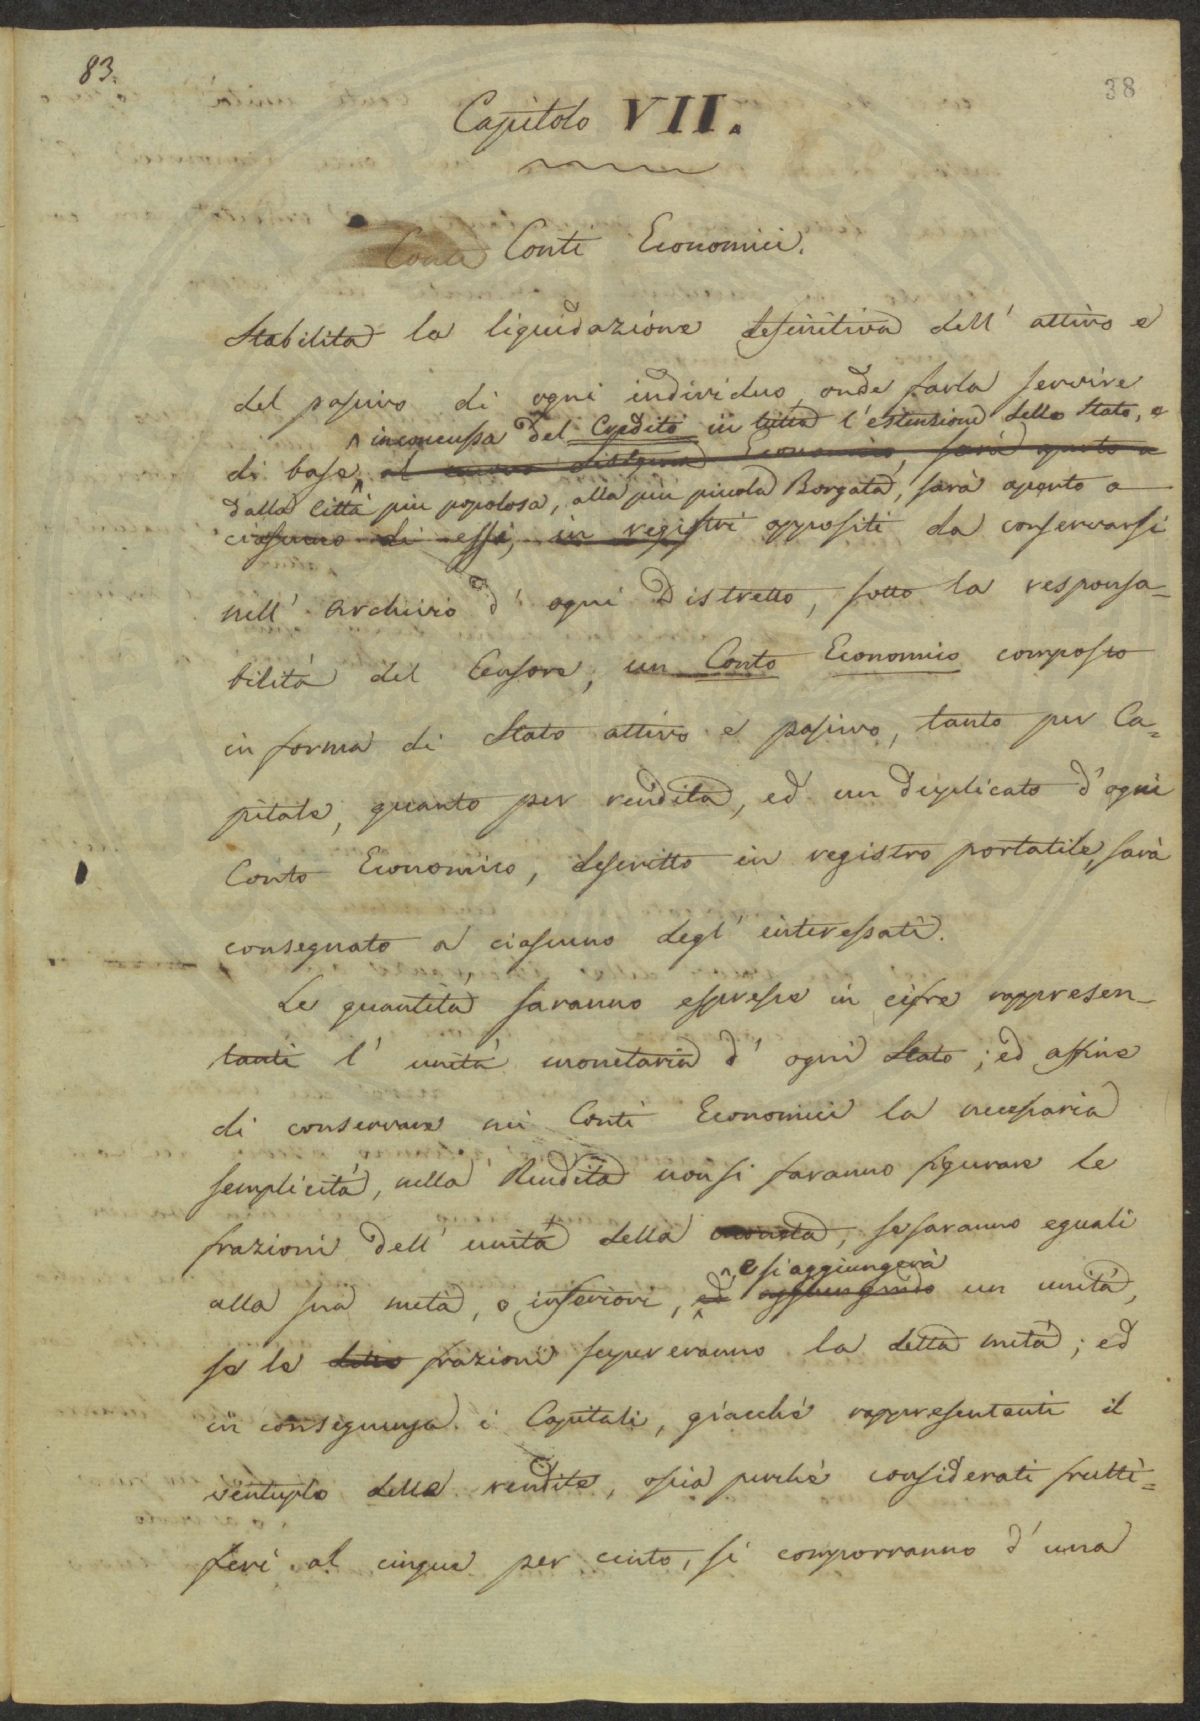 83.
38
Capitolo VII.
Conti Conti Economici.
Stabilita la liquidazione definitiva dell' attivo e
del passivo di ogni individuo, onde farla servire
inconcussa del Credito in tutta l'estensione dello Stato, e
di base, al nuovo Sistema Economico, sarà aperto a
dalla Città più popolosa, alla più piccola Borgata, sarà aperto a
ciascuno di essi, in registri appositi da conservarsi
nell' Archivio d' ogni Distretto, sotto la responsa-
bilità del Censore, un Conto Economico composto
in forma di Stato attivo e passivo, tanto per Ca=
pitale, quanto per rendita, ed un duplicato d' ogni
Conto Economico, descritto in registro portatile, sarà
consegnato a ciascuno degl' interessati.
Le quantità saranno espresse in cifre rappresen-
tanti l' unità monetaria d' ogni Stato; ed affine
di conservare nei Conti Economici la necessaria
semplicità, nella Rendita non si faranno figurare le
frazioni dell' unità della moneta, se saranno eguali
e si aggiungerà
alla sua metà, o inferiori, ed aggiungendo un unità,
se le dette frazioni supereranno la detta metà; ed
in conseguenza i Capitali, giacchè rappresentanti il
ventuplo delle rendite, ossia perchè considerati frutti=
feri al cinque per cento, si comporranno d' una